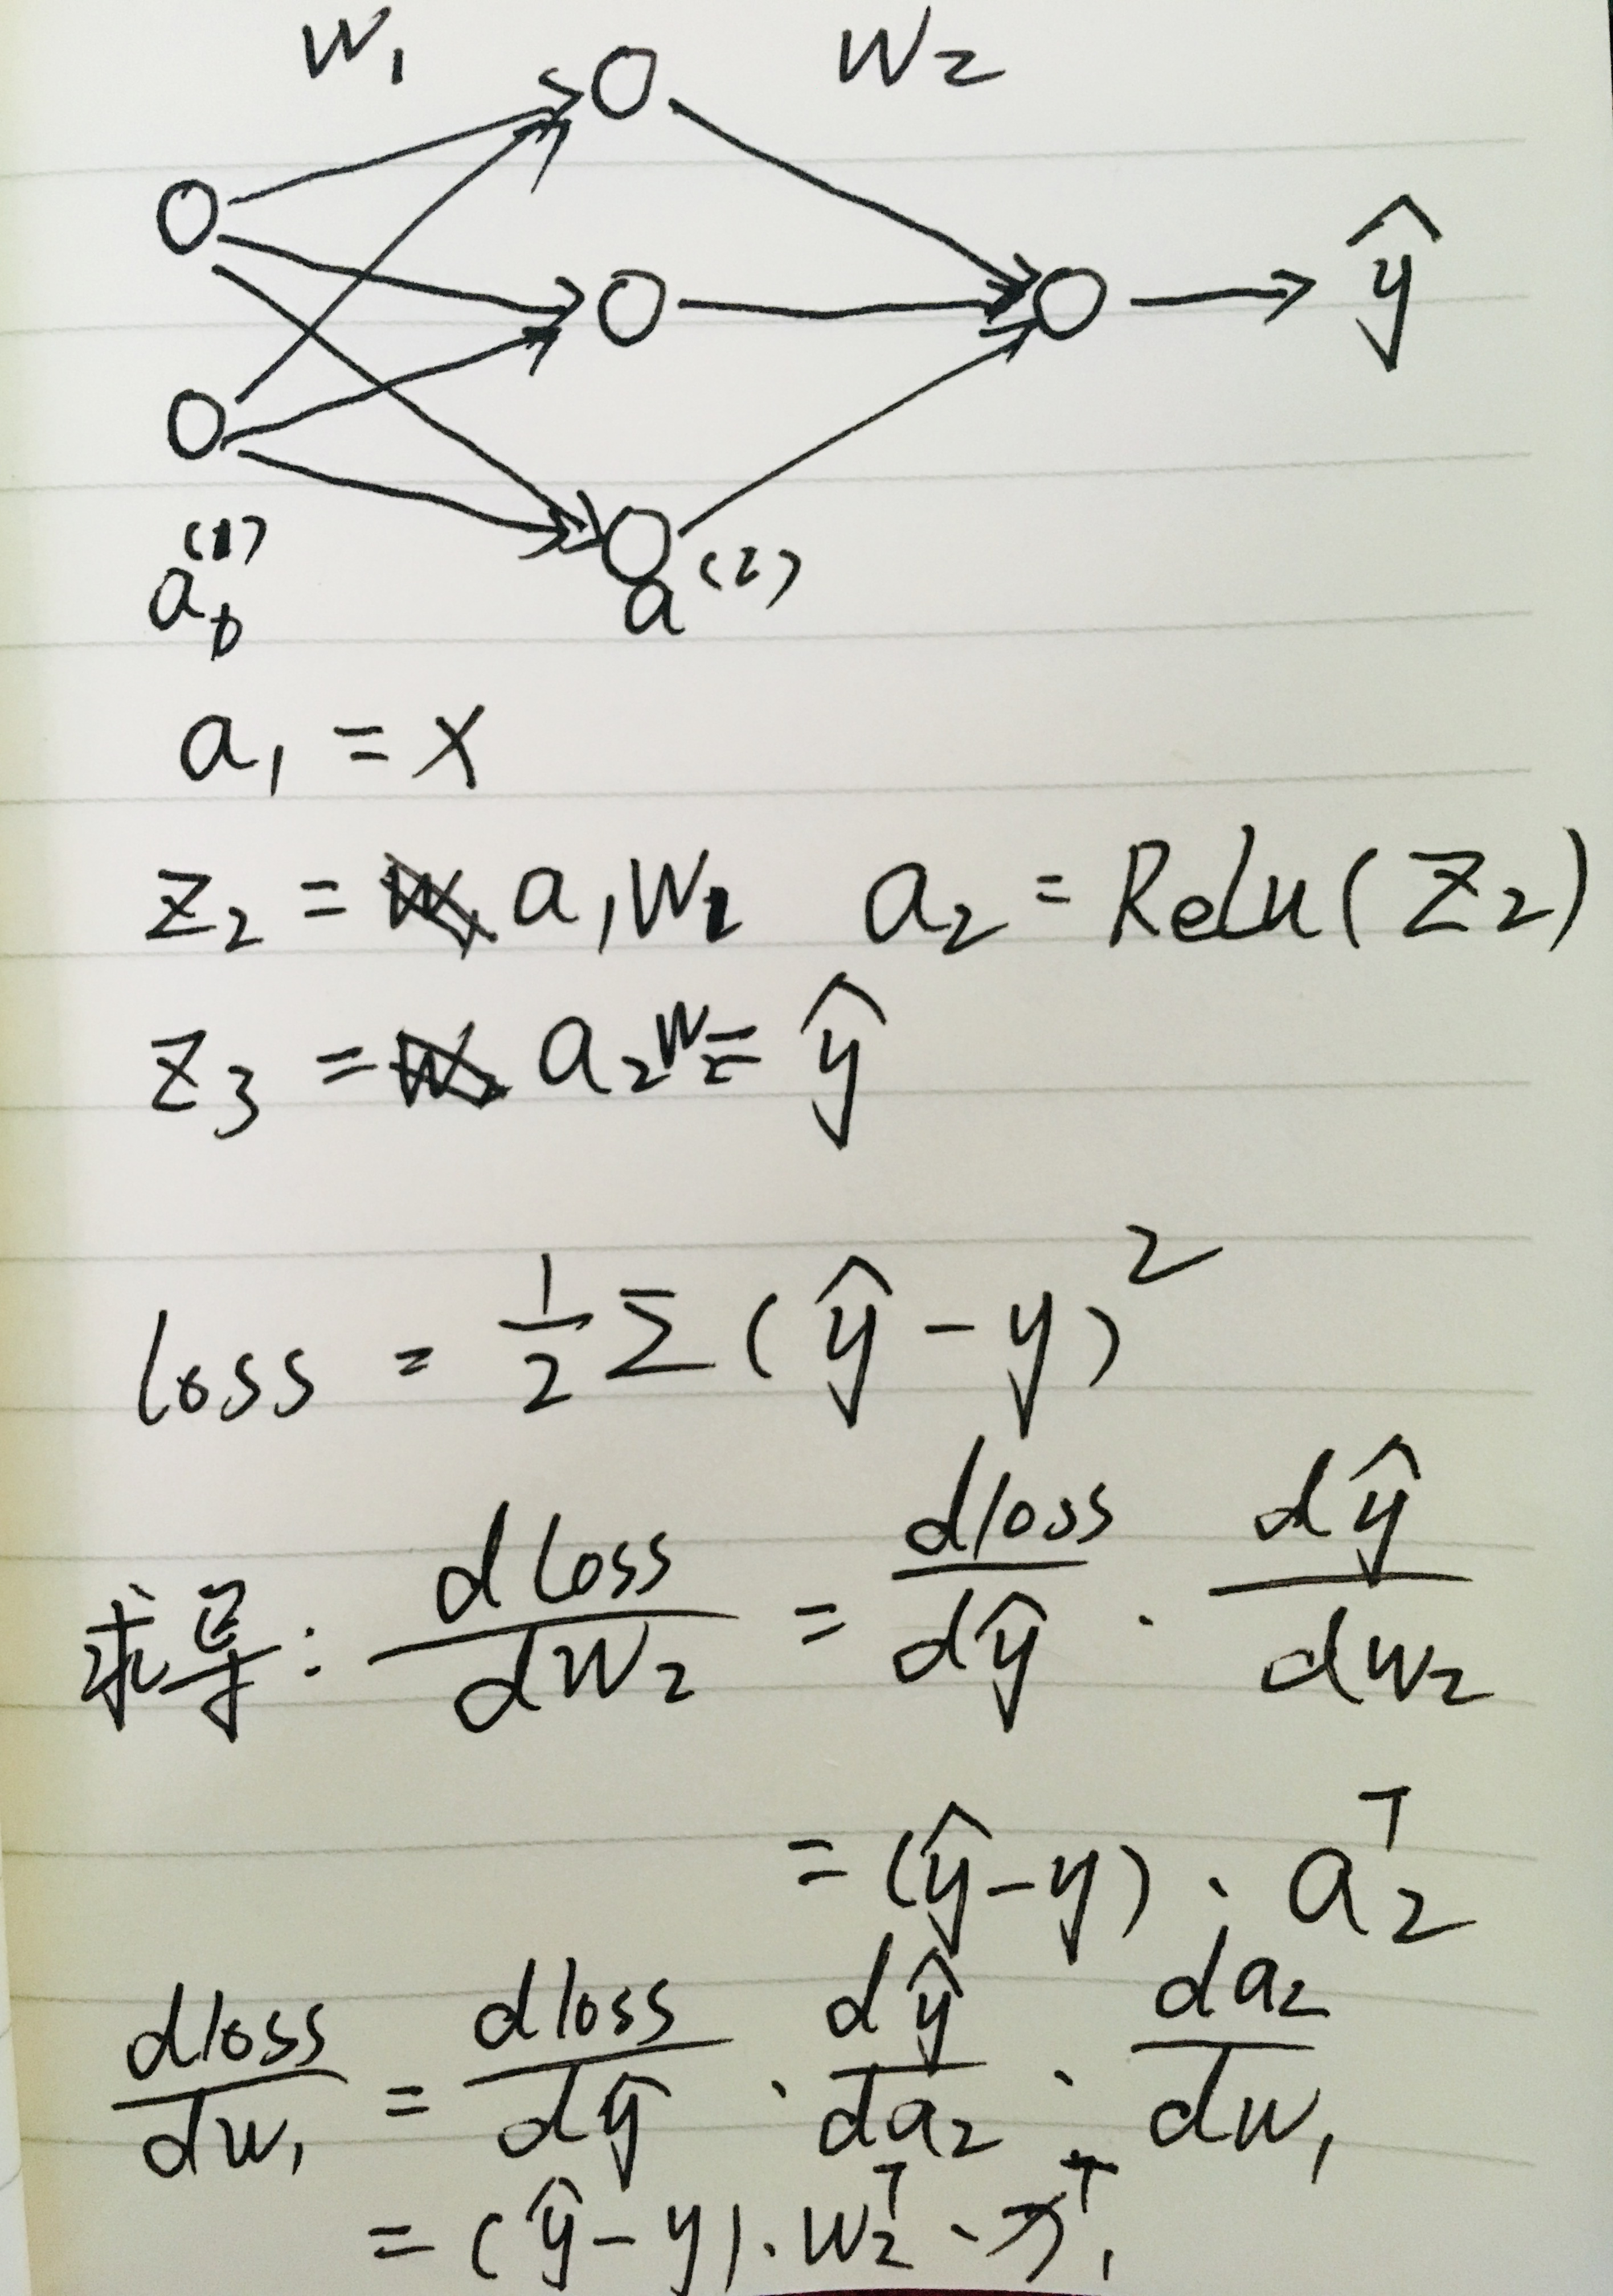 W₁ W₂
ŷ
a⁽¹⁾ a⁽²⁾
a₁ = x
z₂ = a₁W₁ a₂ = Relu(z₂)
z₃ = a₂W₂ = ŷ
loss = 1/2 Σ (ŷ - y)²
求导: dloss/dw₂ = dloss/dŷ · dŷ/dw₂
= (ŷ - y) · a₂ᵀ
dloss/dw₁ = dloss/dŷ · dŷ/da₂ · da₂/dw₁
= (ŷ - y) · w₂ᵀ ·